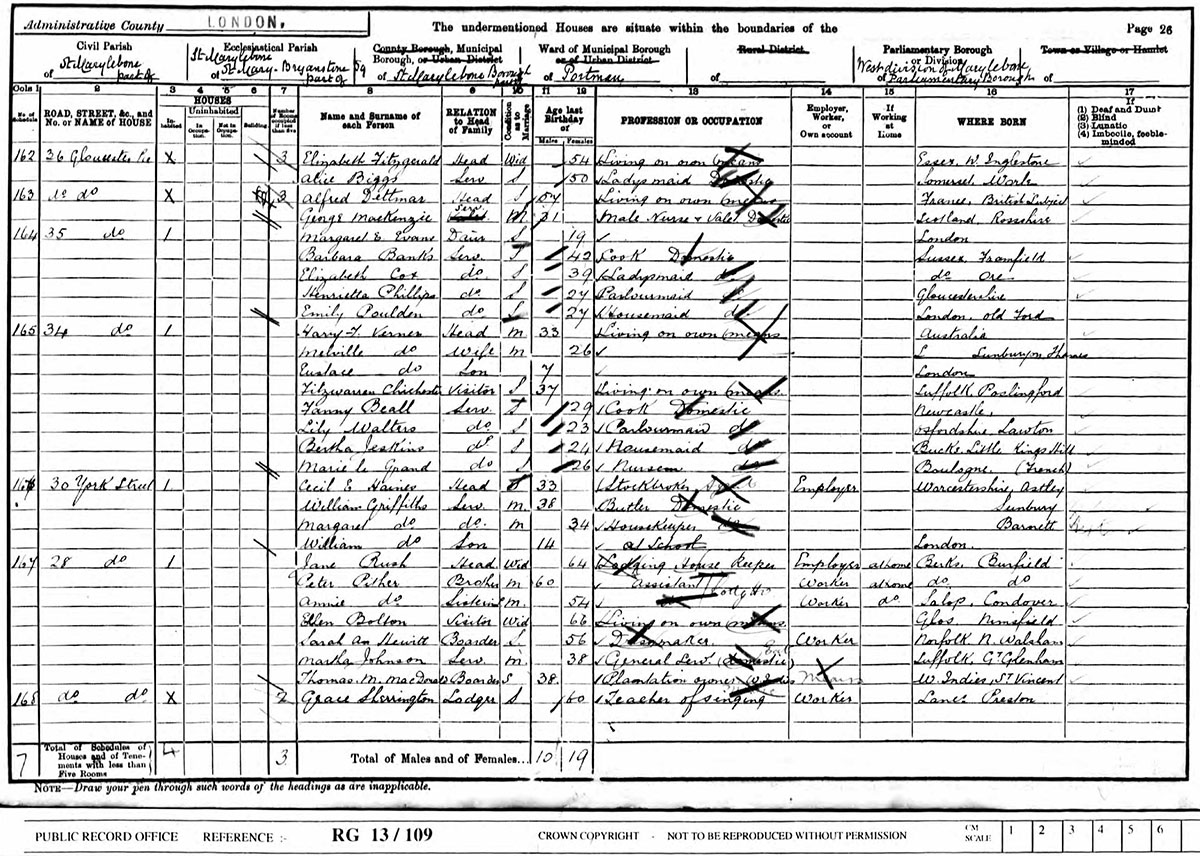 Administrative County LONDON. The undermentioned Houses are situate within the boundaries of the Page 26
Civil Parish of St Marylebone part of
Ecclesiastical Parish St Marylebone of St Mary. Bryanstone Sq part of
County Borough, Municipal Borough, or Urban District of St Marylebone Borough
Ward of Municipal Borough or of Urban District of Portman
Rural District of
Parliamentary Borough or Division of West division of Marylebone Parliamentary Borough
Town or Village or Hamlet of
Cols 1 2 3 4 5 6 7 8 9 10 11 12 13 14 15 16 17
No. of Schedule
ROAD, STREET, &c., and No. or NAME of HOUSE
HOUSES
Inhabited
Uninhabited
In Occupation. Not in Occupation.
Building
Number of Rooms occupied if less than five
Name and Surname of each Person
RELATION to Head of Family
Condition as to Marriage
Age last Birthday of
Males Females
PROFESSION OR OCCUPATION
Employer, Worker, or Own account
If Working at Home
WHERE BORN
If (1) Deaf and Dumb (2) Blind (3) Lunatic (4) Imbecile, feeble-minded
162 36 Gloucester Ple X 3 Elizabeth Fitzgerald Head Wid 54 Living on own means Essex, W. Inglestone
Alice Biggs Serv S 50 Ladysmaid Domestic Somerset, Work
163 do do X 3 Alfred Dittmar Head S 57 Living on own means France, British Subject
George Mackenzie Serv M 31 Male Nurse & Valet Domestic Scotland, Rosshire
164 35 do 1 Margaret E Evans Daur S 19 London
Barbara Banks Serv S 42 Cook Domestic Sussex, Framfield
Elizabeth Cox do S 39 Ladysmaid do do Ore
Henrietta Phillips do S 27 Parlourmaid do Gloucestershire
Emily Poulden do S 27 Housemaid do London, old Ford
165 34 do 1 Harry F. Verner Head M 33 Living on own means Australia
Melville do Wife M 26 Sunbury on Thames
Eustace do Son 7 London
Fitzwarren Chichester Visitor S 37 Living on own means Suffolk, Poslingford
Fanny Beall Serv S 29 Cook Domestic Newcastle,
Lily Walters do S 23 Parlourmaid do Oxfordshire, Lawton
Bertha Jeskins do S 24 Housemaid do Bucks, Little Kings Hill
Marie le Grand do S 26 Nurse do Boulogne, (French)
166 30 York Street 1 Cecil E Haines Head S 33 Stockbroker Employer Worcestershire, Astley
William Griffiths Serv M 38 Butler Domestic Sunbury
Margaret do do. M 34 Housekeeper do Barnett
William do Son 14 at School London.
167 28 do 1 Jane Rush Head Wid 64 Lodging House Keeper Employer at home Berks, Burfield
Peter Pether Brother M 60 Assistant Worker at home do. do
Annie do Sister in M. 54 Worker do Salop, Condover
Ellen Bolton Visitor Wid 66 Living on own means. Glos Nimsfield
Sarah An Hewitt Boarder S 56 Dressmaker. Worker Norfolk N. Walsham
Martha Johnson Serv M. 38 General Serv. (domestic) Suffolk, Gt Glenham
Thomas M. MacDonald Boarder S 38. Plantation owner W. Indies, St Vincent
168 do do X 2 Grace Sherrington Lodger S 60 Teacher of singing Worker Lancs Preston
7 Total of Schedules of Houses and of Tenements with less than Five Rooms 4 3 Total of Males and of Females... 10 19
NOTE—Draw your pen through such words of the headings as are inapplicable.
PUBLIC RECORD OFFICE REFERENCE :- RG 13 / 109 CROWN COPYRIGHT - NOT TO BE REPRODUCED WITHOUT PERMISSION CM SCALE 1 2 3 4 5 6